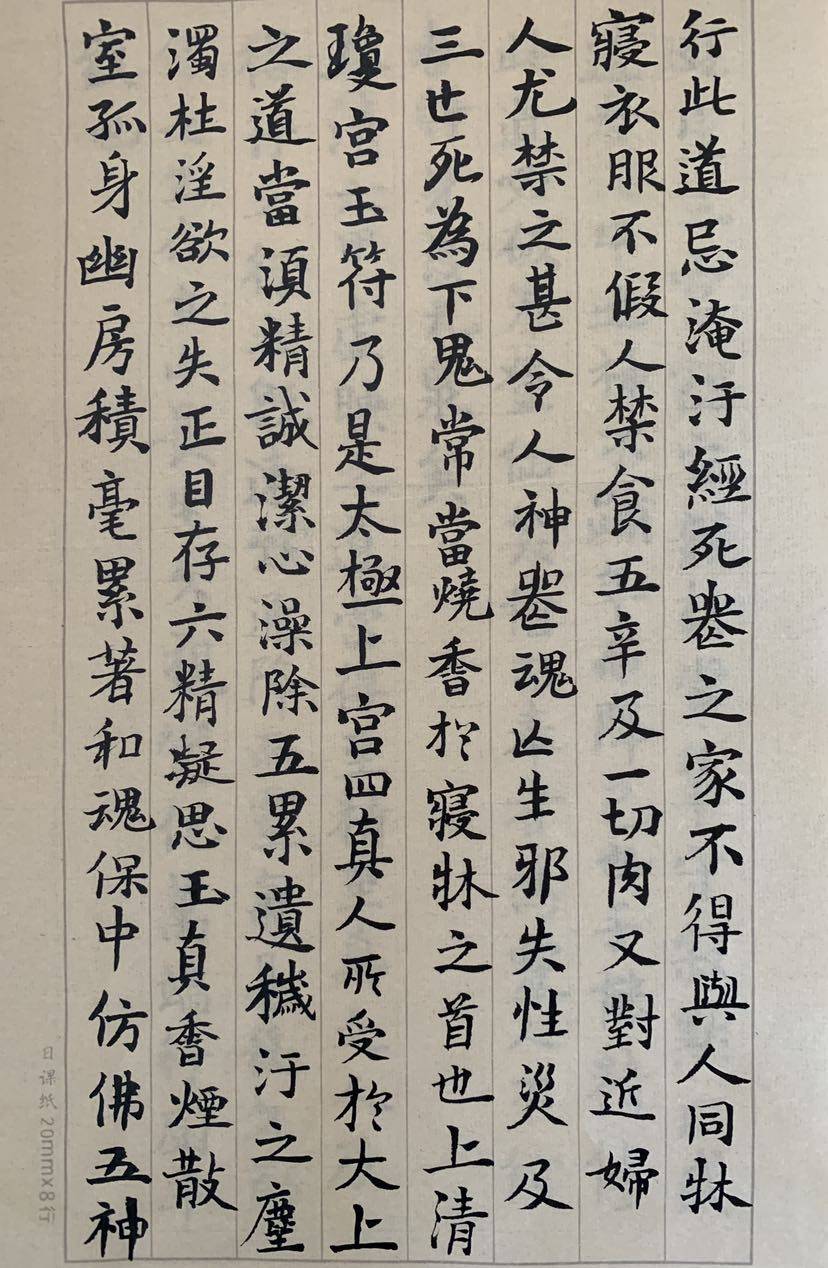 行此道忌淹汙經死喪之家不得與人同牀
寢衣服不假人禁食五辛及一切肉又對近婦
人尤禁之甚令人神喪魂亡生邪失性災及
三世死為下鬼常當燒香於寢牀之首也上清
瓊宮玉符乃是太極上宮四真人所受於太上
之道當須精誠潔心澡除五累遺穢汙之塵
濁杜淫欲之失正目存六精凝思玉真香煙散
室孤身幽房積毫累著和魂保中仿佛五神
日课纸20mmx8行